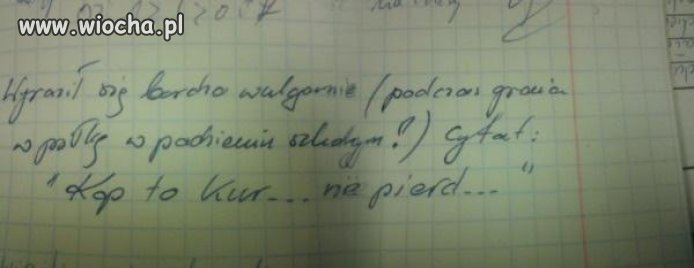 www.wiocha.pl
Wyraził się bardzo wulgarnie (podczas grania
w piłkę w podziemiu szkolnym?) Cytat:
"Kop to Kur... nie pierd..."